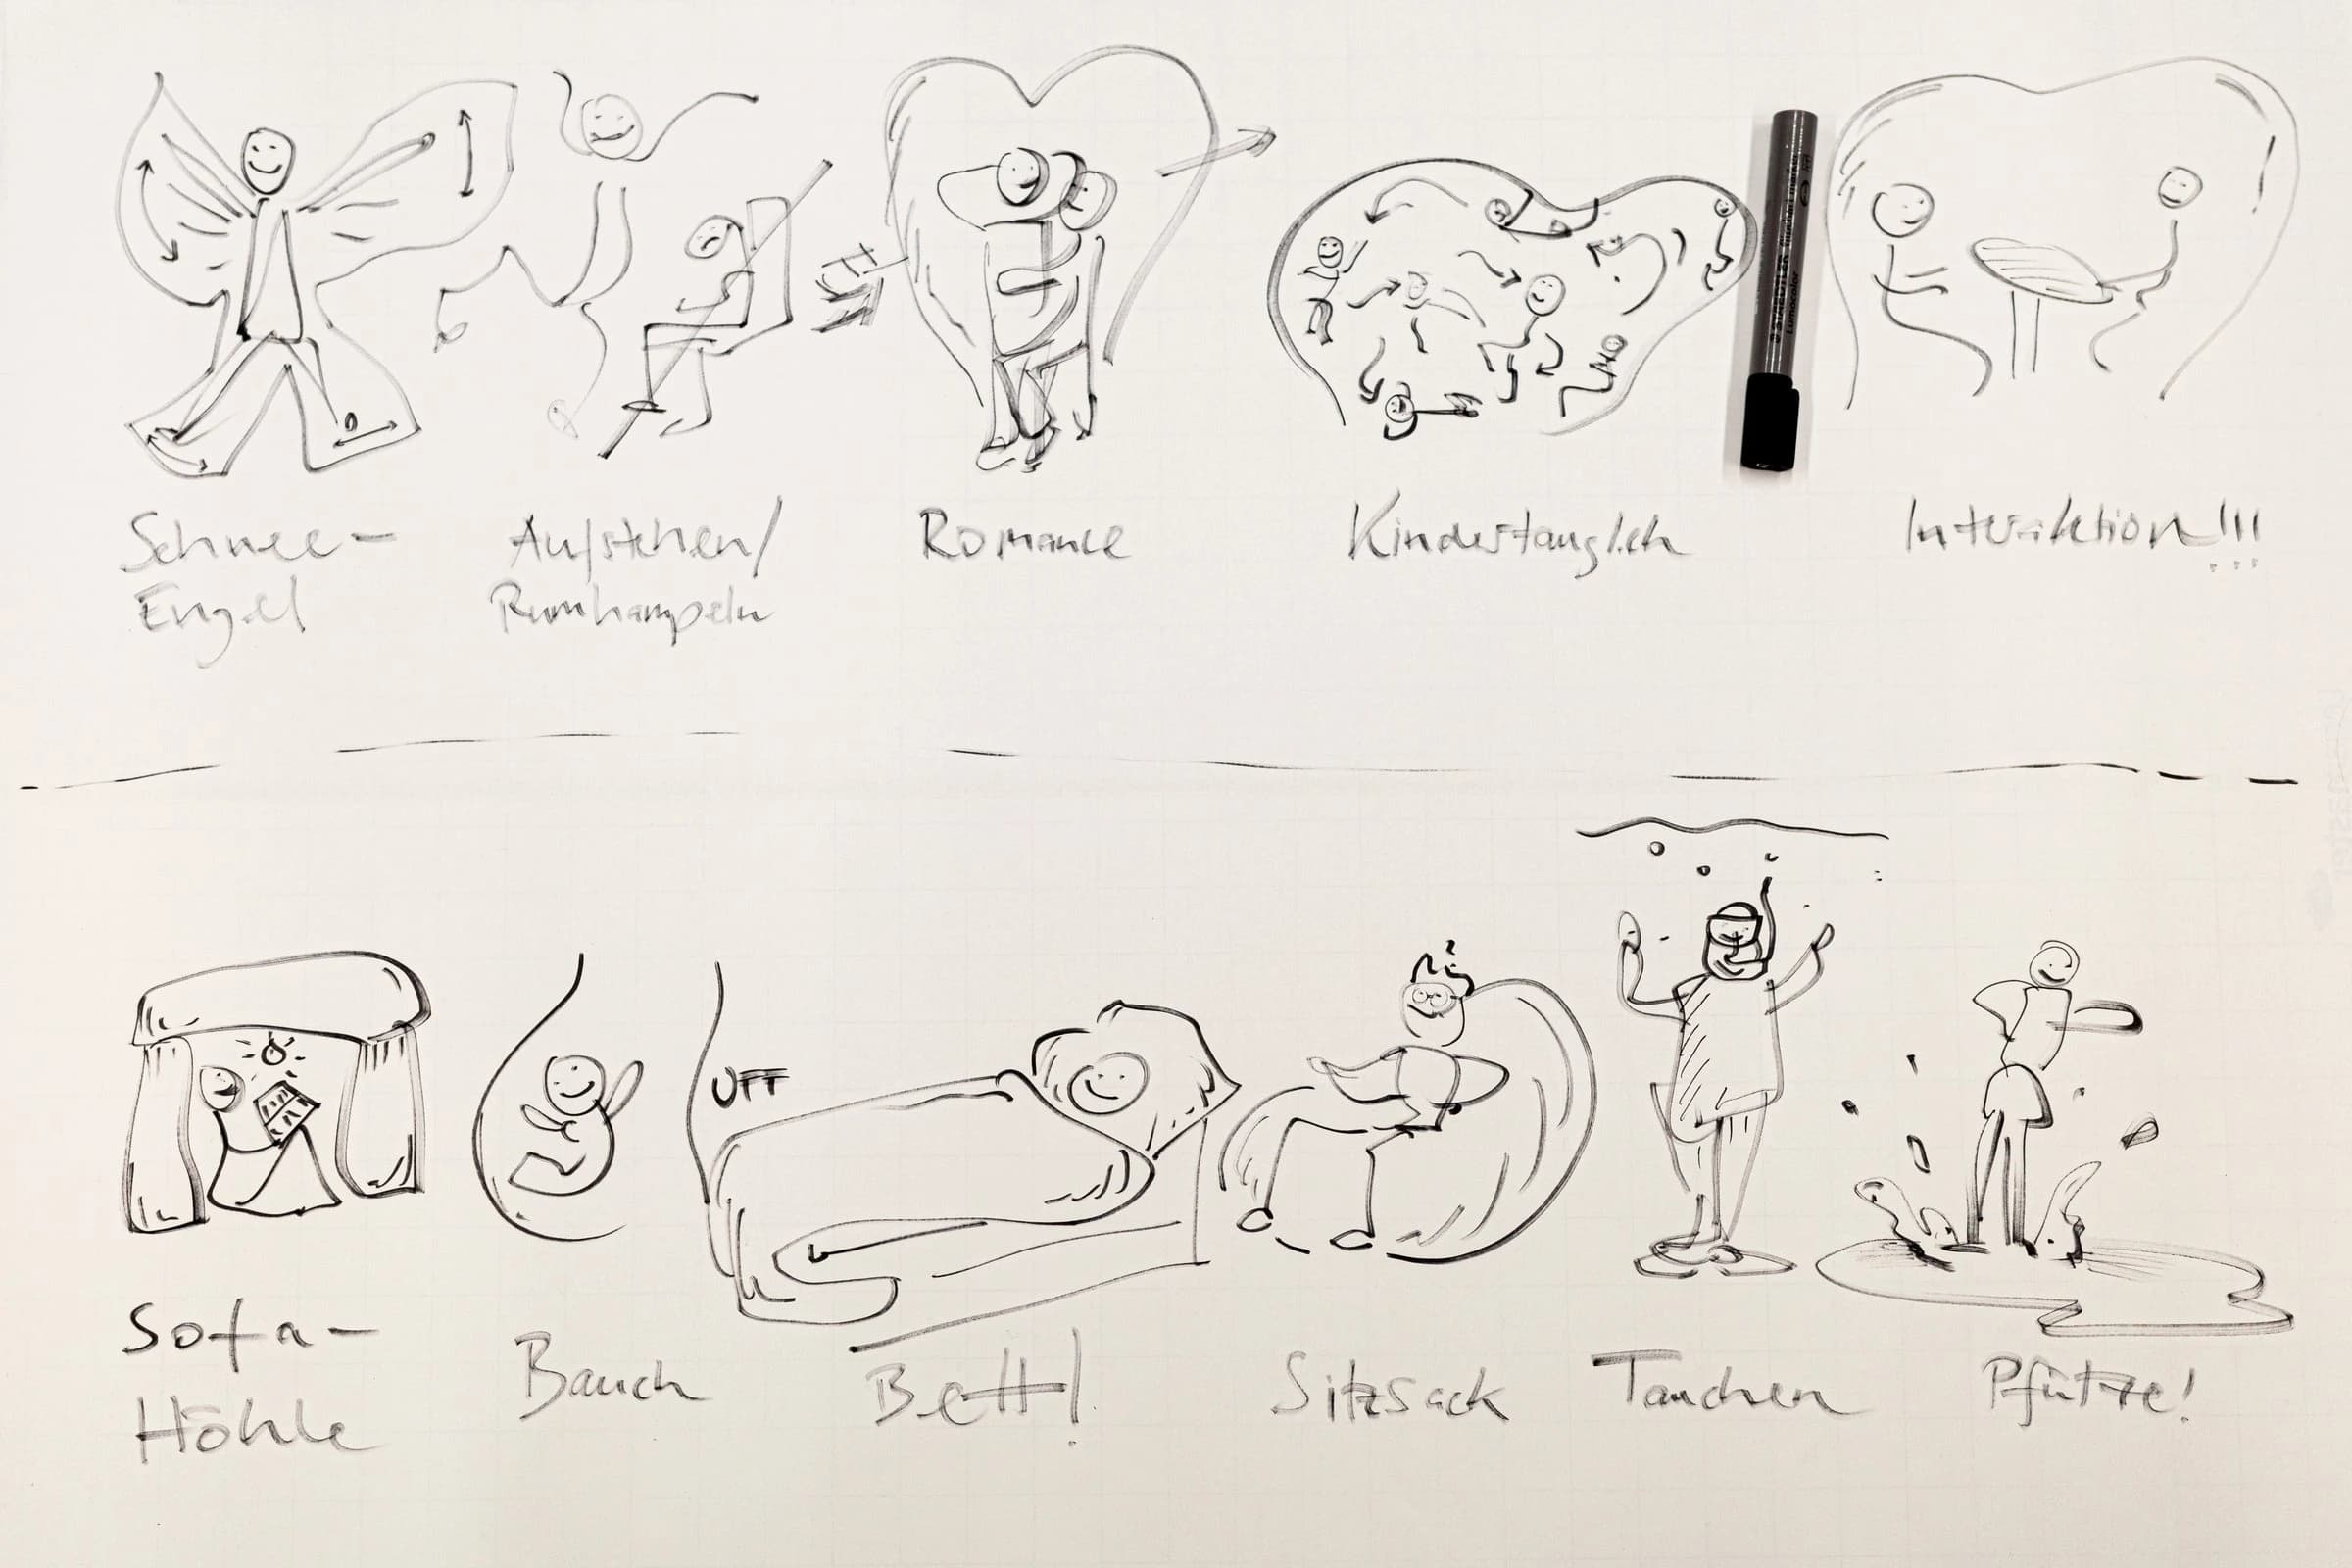 Schnee-
Engel
Aufstehen/
Rumhampeln
Romance
Kindertauglich
Interaktion!!!
STAEDTLER
Lumocolor
UFF
Sofa-
Höhle
Bauch
Bett!
Sitzsack
Tauchen
Pfütze!